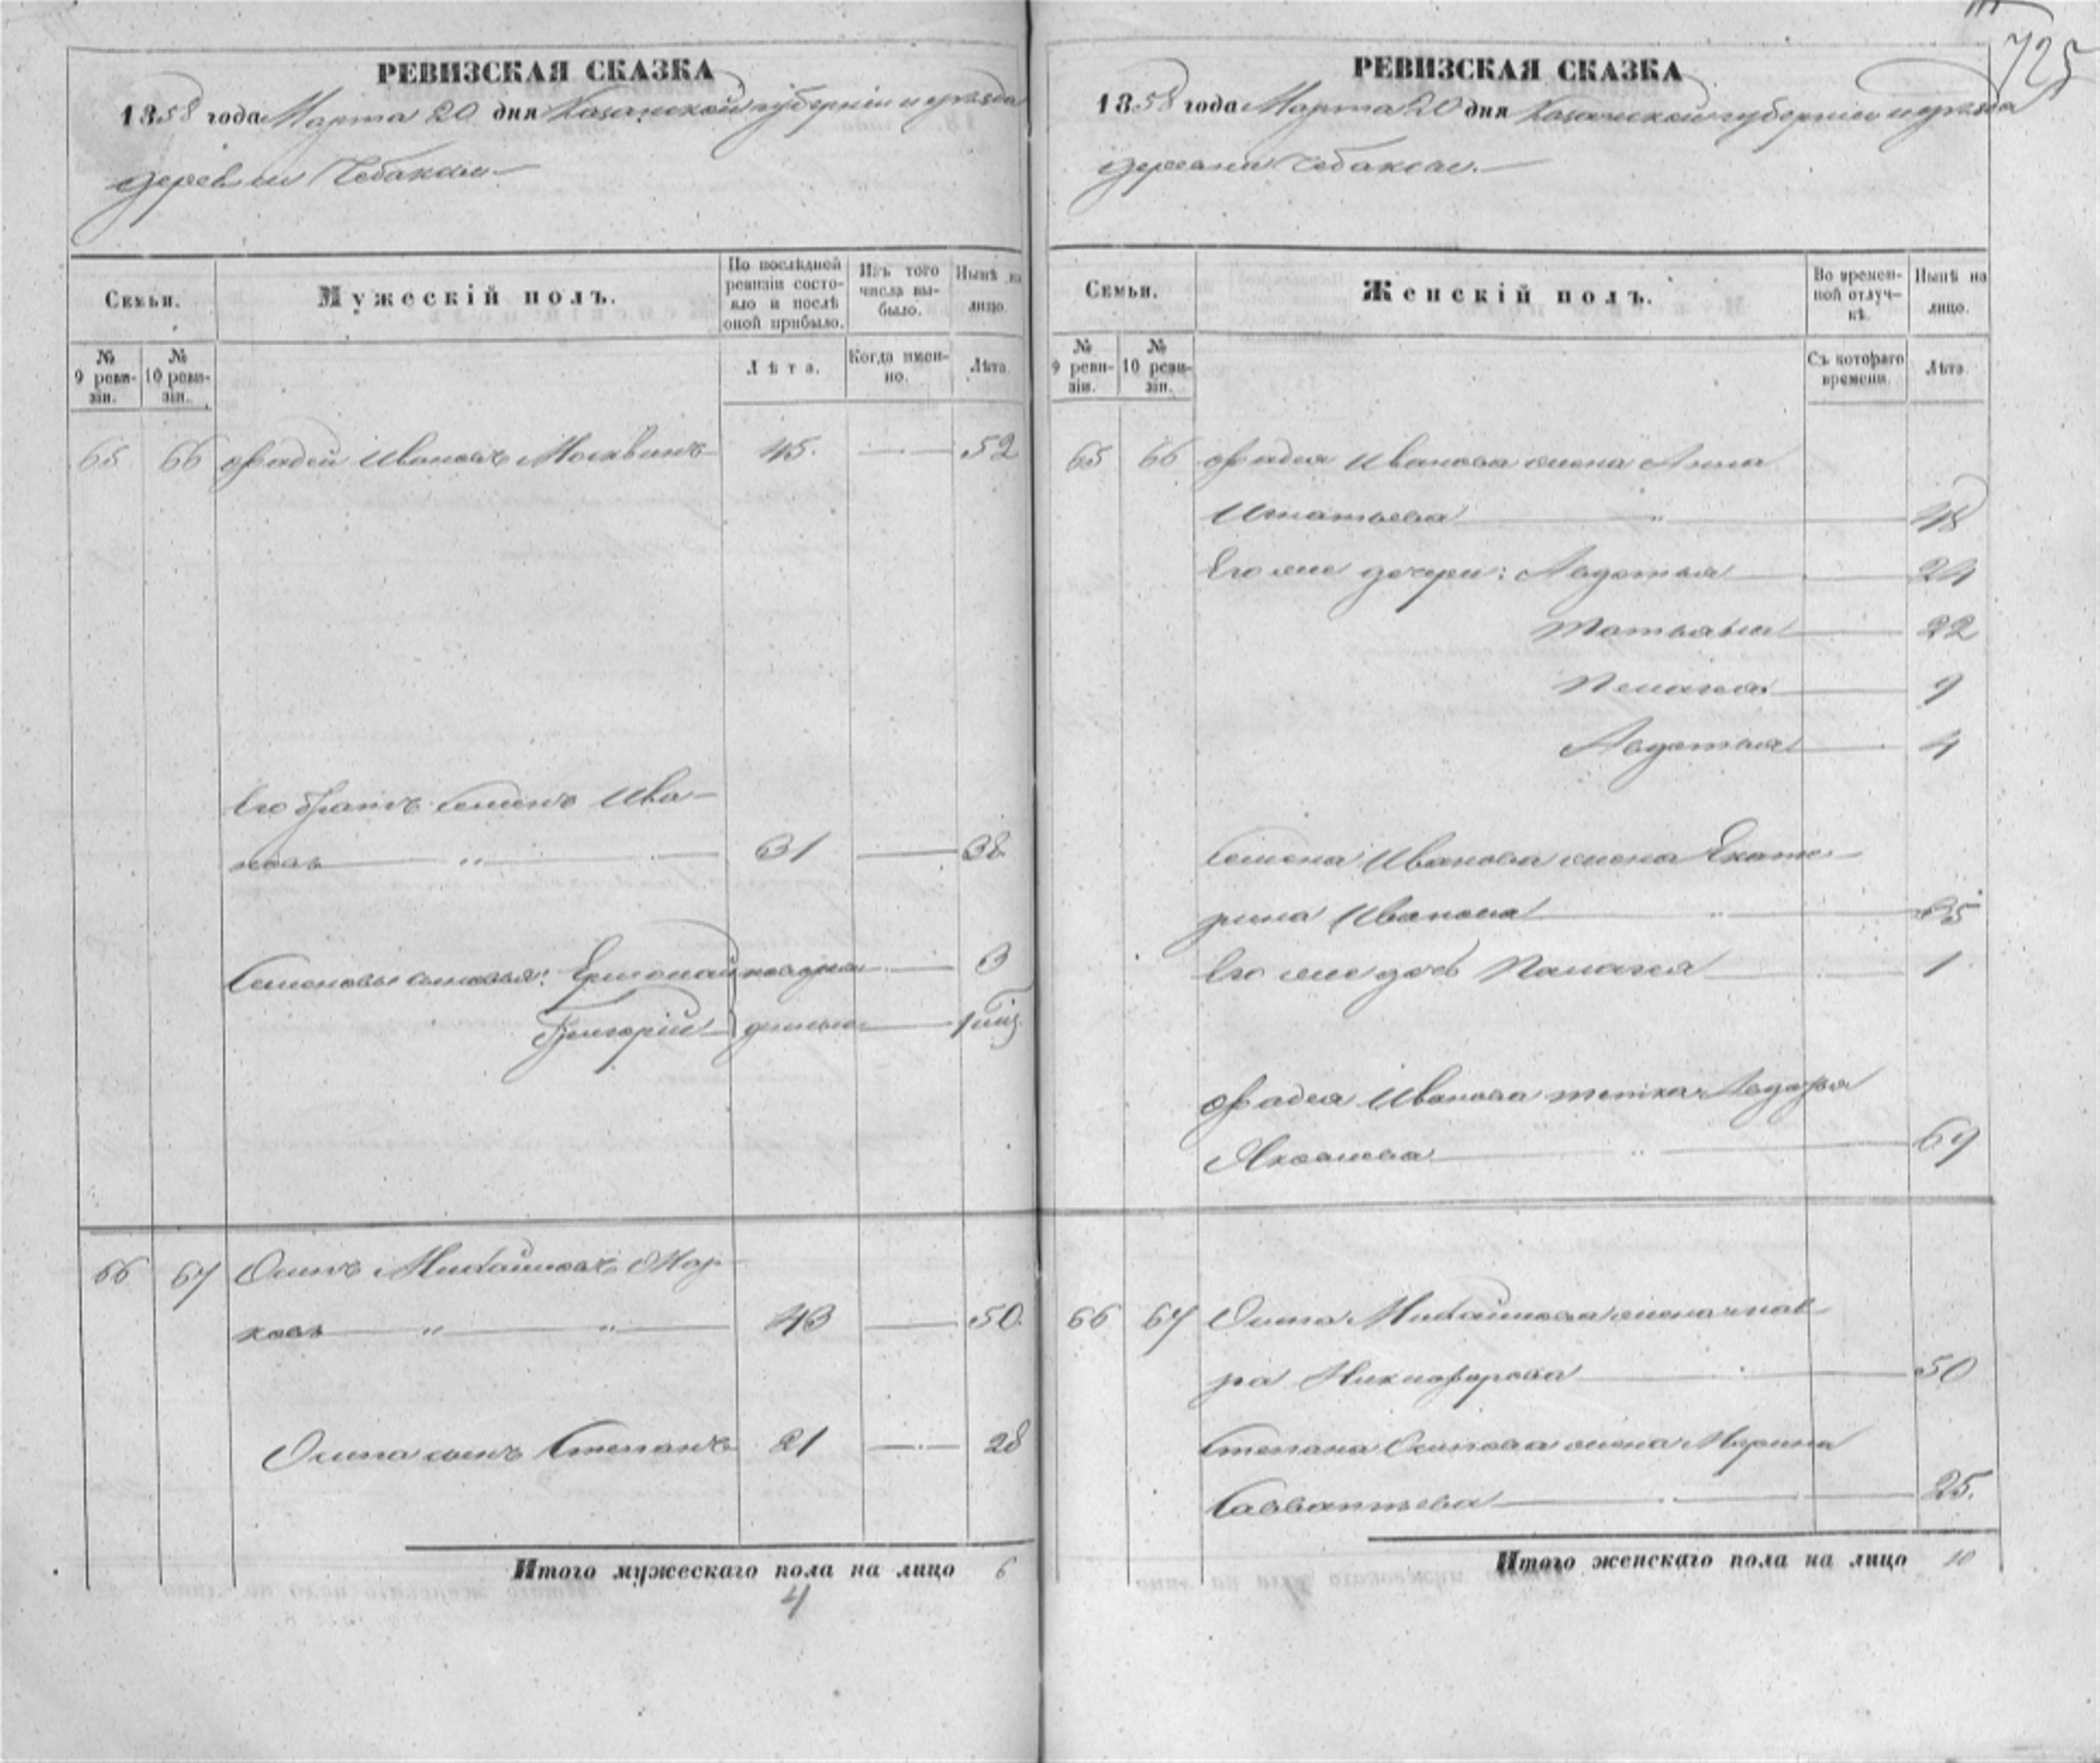 725
РЕВИЗСКАЯ СКАЗКА
1858 года Марта 20 дня Казанской губерніи и уѣзда
деревни Чебакси
Семьи.
Мужескій полъ.
По послѣдней ревизіи состояло и послѣ оной прибыло.
Изъ того числа выбыло.
Нынѣ на лицо.
№ 9 ревизіи.
№ 10 ревизіи.
Лѣта.
Когда именно.
Лѣта.
65 66 Фадей Ивановъ Москвинъ 45. 52
Его братъ Семенъ Ива-
новъ " 31 38.
Семеновы сыновья: Ермолай новорож 3
Григорій денные 1 мѣс.
66 67 Осипъ Михайловъ Мар-
ковъ " " 43 50.
Осипа сынъ Степанъ 21 28
Итого мужескаго пола на лицо 6
4
РЕВИЗСКАЯ СКАЗКА
1858 года Марта 20 дня Казанской губерніи и уѣзда
деревни Чебакси.
Семьи.
Женскій полъ.
Во временной отлучкѣ.
Нынѣ на лицо.
№ 9 ревизіи.
№ 10 ревизіи.
Съ котораго времени.
Лѣта
65 66 Фадея Иванова жена Анна
Игнатьева " 48
Его же дочери: Авдотья 24
Татьяна 22
Пелагея 9
Авдотья 4
Семена Иванова жена Екате-
рина Иванова " 35
Его же дочь Палагея 1
Фадея Иванова тетка
Яковлева " 67
66 67 Осипа Михайлова жена
ра Никифорова 50
Степана Осипова жена Марина
Савватьева 25.
Итого женскаго пола на лицо 10